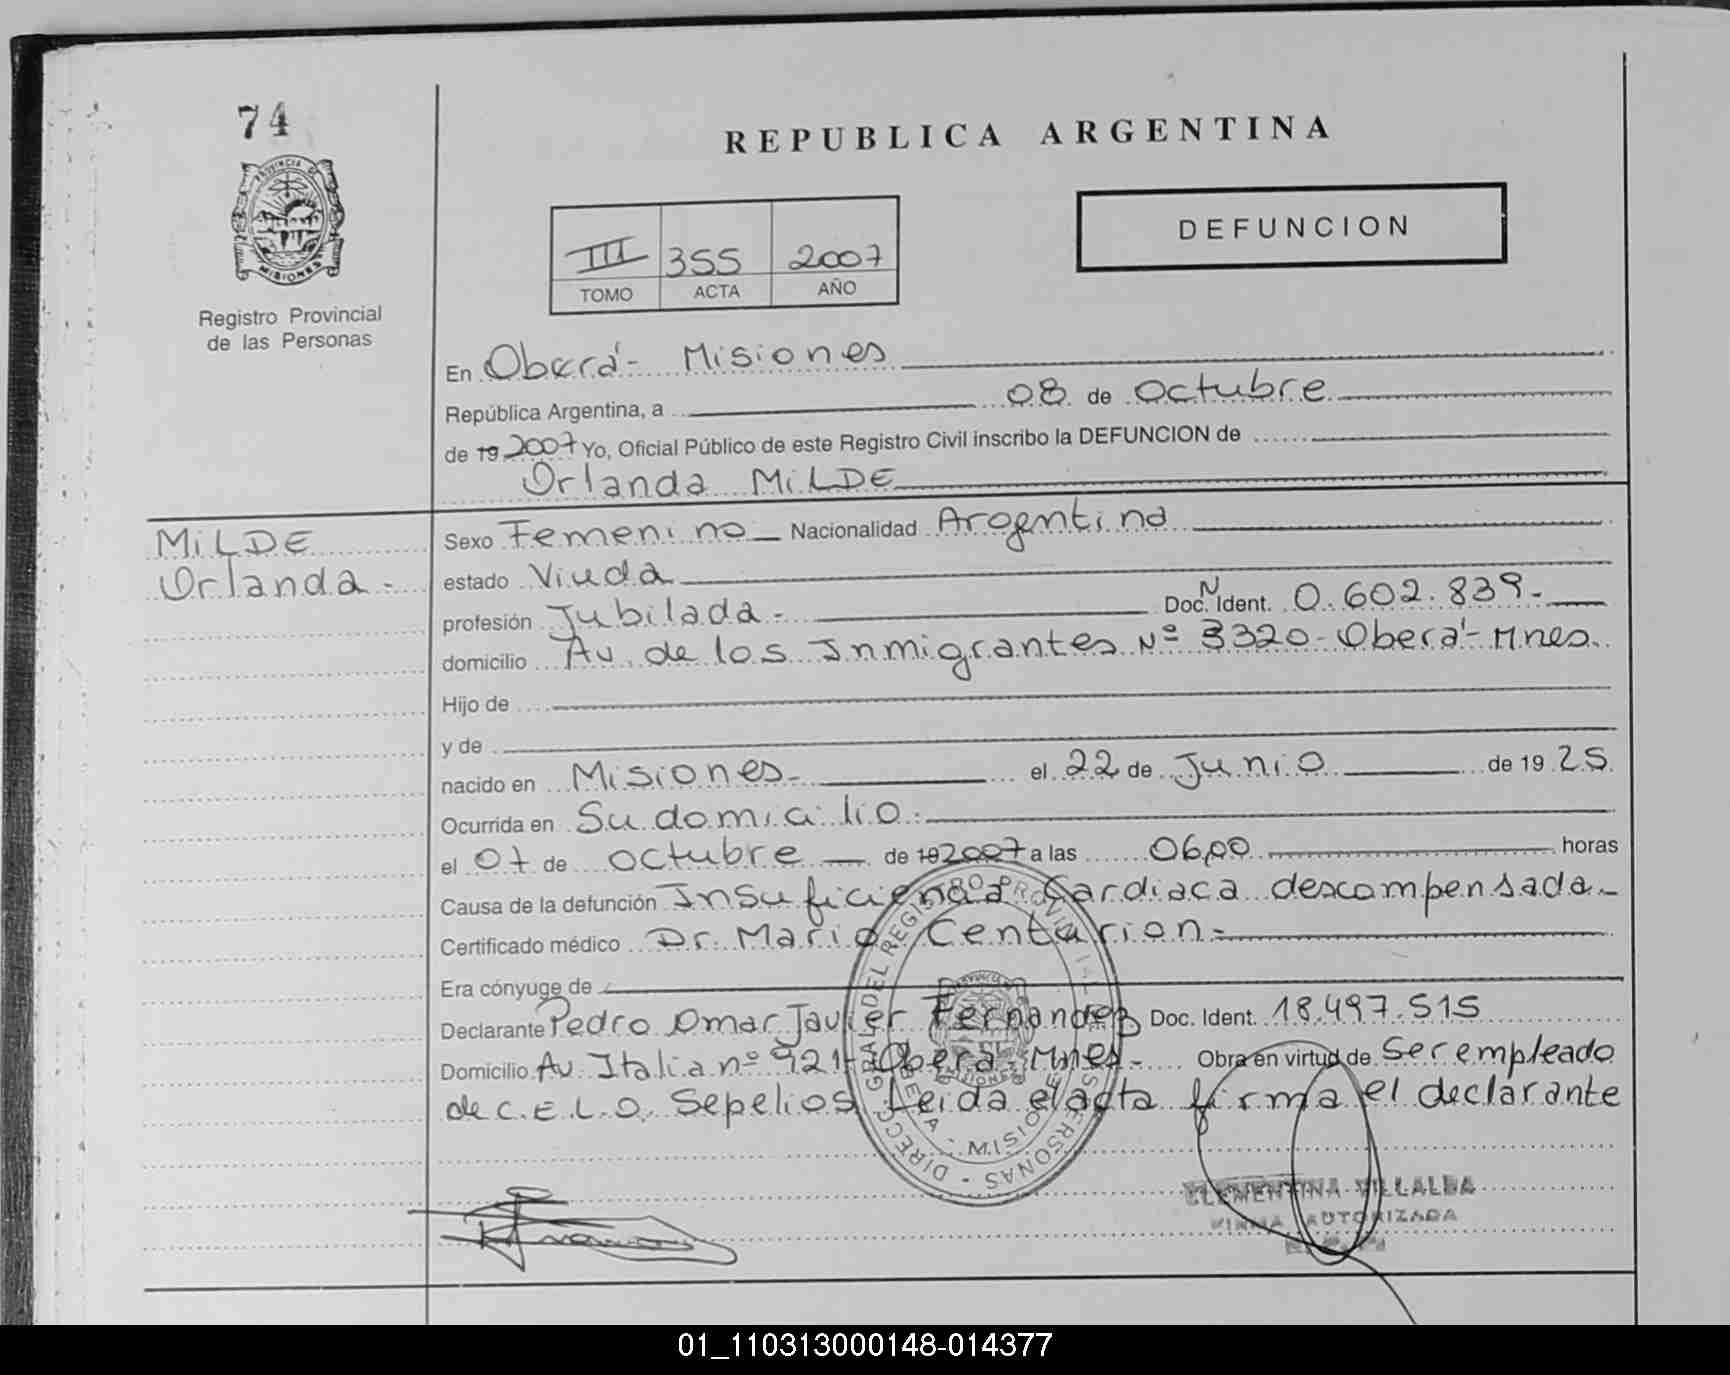 74
PROVINCIA DE
MISIONES
Registro Provincial
de las Personas
REPUBLICA ARGENTINA
DEFUNCION
III 355 2007
TOMO ACTA AÑO
En Oberá- Misiones
República Argentina, a 08 de Octubre
de 19 2007 Yo, Oficial Público de este Registro Civil inscribo la DEFUNCION de
Orlanda MiLDE
MiLDE
Orlanda -
Sexo Femenino Nacionalidad Argentina
estado Viuda
profesión Jubilada - Doc. N Ident. 0.602.839.-
domicilio Av. de los Inmigrantes Nº 3320- Oberá- Mnes.
Hijo de
y de
nacido en Misiones- el 22 de Junio de 19 25
Ocurrida en Su domicilio.
el 07 de octubre de 19 2007 a las 06,00 horas
Causa de la defunción Insuficiencia Cardiaca descompensada-
Certificado médico Dr. Mario Centurion-
Era cónyuge de
Declarante Pedro Omar Javier Fernandez Doc. Ident. 18.497.515
Domicilio Av Italia nº 921- Oberá- Mnes.- Obra en virtud de Ser empleado
de C.E.L.O. Sepelios Leida el acta firma el declarante
CLEMENTINA VILLALBA
FIRMA AUTORIZADA
01_110313000148-014377